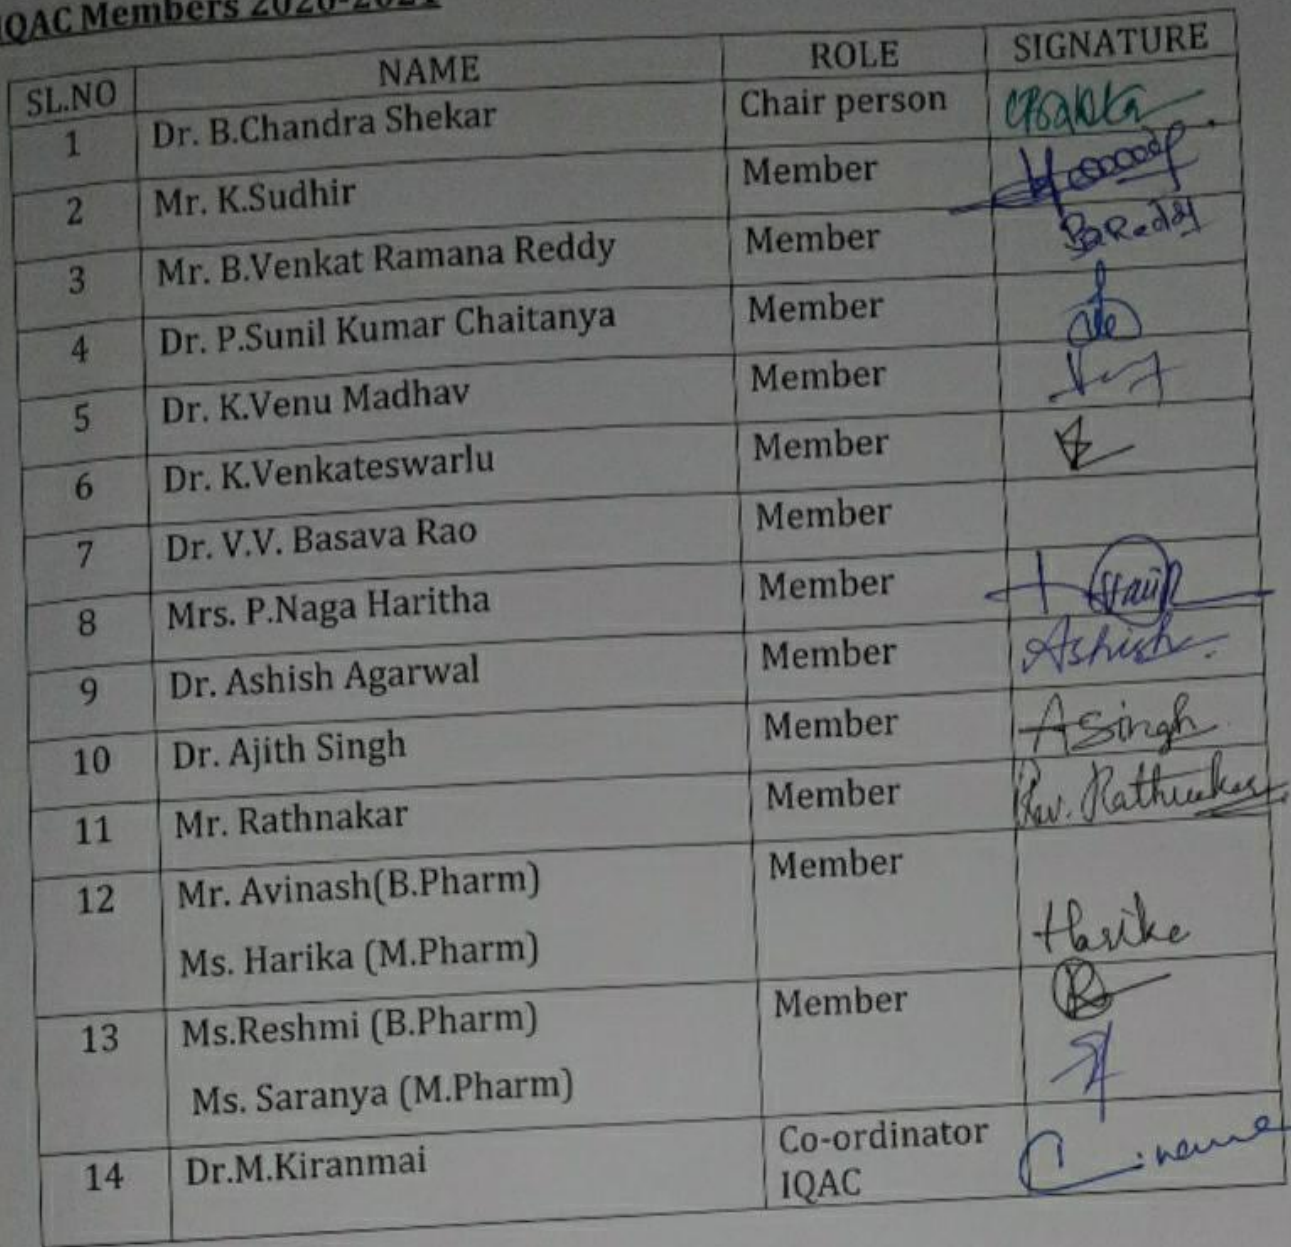 IQAC Members 2020-2021
SL.NO NAME ROLE SIGNATURE
1 Dr. B.Chandra Shekar Chair person
2 Mr. K.Sudhir Member
3 Mr. B.Venkat Ramana Reddy Member BReddy
4 Dr. P.Sunil Kumar Chaitanya Member
5 Dr. K.Venu Madhav Member
6 Dr. K.Venkateswarlu Member
7 Dr. V.V. Basava Rao Member
8 Mrs. P.Naga Haritha Member
9 Dr. Ashish Agarwal Member Ashish.
10 Dr. Ajith Singh Member ASingh
11 Mr. Rathnakar Member Rev. Rathnakar
12 Mr. Avinash(B.Pharm) Member
Ms. Harika (M.Pharm) Harika
13 Ms.Reshmi (B.Pharm) Member
Ms. Saranya (M.Pharm)
14 Dr.M.Kiranmai Co-ordinator
IQAC